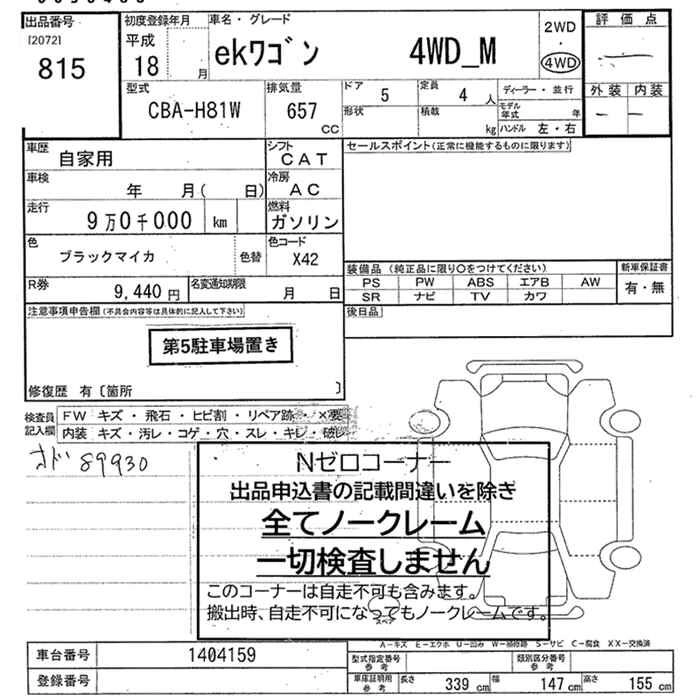 出品番号
[2072]
815
初度登録年月
平成
18 月
車名・グレード
ekワゴン 4WD_M
2WD
・
4WD
評価点
外装 内装
型式
CBA-H81W
排気量
657
CC
ドア 5
定員 4 人
ディーラー・並行
形状
積載 kg
モデル年式 年
ハンドル 左・右
車歴 自家用
シフト CAT
セールスポイント(正常に機能するものに限ります)
車検 年 月( 日)
冷房 AC
走行 9万0千000 km
燃料 ガソリン
色 ブラックマイカ 色替
色コード X42
装備品(純正品に限り〇をつけてください)
新車保証書
PS PW ABS エアB AW
有・無
SR ナビ TV カワ
R券 9,440 円
名変通知期限 月 日
後日品
注意事項申告欄(不具合内容等は具体的に記入して下さい)
第5駐車場置き
修復歴 有〔箇所 〕
検査員記入欄
FW キズ・飛石・ヒビ割・リペア跡・×要
内装 キズ・汚レ・コゲ・穴・スレ・キレ・破レ
オド 89930
Nゼロコーナー
出品申込書の記載間違いを除き
全てノークレーム
一切検査しません
このコーナーは自走不可も含みます。
搬出時、自走不可になってもノークレームです。
スペア
A-キズ E-エクボ U-凹み W-補修跡 S-サビ C-腐食 XX-交換済
車台番号 1404159
型式指定番号 参考
類別区分番号 参考
登録番号
車庫証明用 参考
長さ 339 cm
幅 147 cm
高さ 155 cm